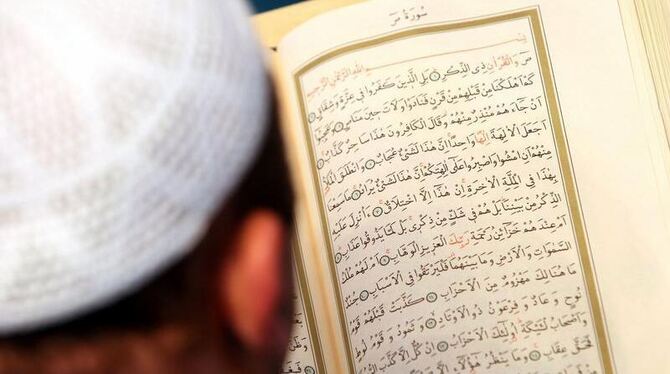 سُورَةُ صۤ
بِسْمِ اللّٰهِ الرَّحْمٰنِ الرَّحِيمِ
صۤ وَالْقُرْاٰنِ ذِي الذِّكْرِ بَلِ الَّذِينَ كَفَرُوا فِي عِزَّةٍ وَشِقَاقٍ
كَمْ اَهْلَكْنَا مِنْ قَبْلِهِمْ مِنْ قَرْنٍ فَنَادَوْا وَلَاتَ حِينَ مَنَاصٍ وَعَجِبُوا
اَنْ جَاءَهُمْ مُنْذِرٌ مِنْهُمْ وَقَالَ الْكَافِرُونَ هٰذَا سَاحِرٌ كَذَّابٌ
اَجَعَلَ الْاٰلِهَةَ اِلٰهًا وَاحِدًا اِنَّ هٰذَا لَشَيْءٌ عُجَابٌ وَانْطَلَقَ الْمَلَأُ
مِنْهُمْ اَنِ امْشُوا وَاصْبِرُوا عَلٰى اٰلِهَتِكُمْ اِنَّ هٰذَا لَشَيْءٌ يُرَادُ مَا سَمِعْنَا
بِهٰذَا فِي الْمِلَّةِ الْاٰخِرَةِ اِنْ هٰذَا اِلَّا اخْتِلَاقٌ ءَاُنْزِلَ عَلَيْهِ
الذِّكْرُ مِنْ بَيْنِنَا بَلْ هُمْ فِي شَكٍّ مِنْ ذِكْرِي بَلْ لَمَّا يَذُوقُوا عَذَابِ
اَمْ عِنْدَهُمْ خَزَائِنُ رَحْمَةِ رَبِّكَ الْعَزِيزِ الْوَهَّابِ اَمْ لَهُمْ مُلْكُ
السَّمٰوَاتِ وَالْاَرْضِ وَمَا بَيْنَهُمَا فَلْيَرْتَقُوا فِي الْاَسْبَابِ جُنْدٌ
مَا هُنَالِكَ مَهْزُومٌ مِنَ الْاَحْزَابِ كَذَّبَتْ قَبْلَهُمْ قَوْمُ
نُوحٍ وَعَادٌ وَفِرْعَوْنُ ذُو الْاَوْتَادِ وَثَمُودُ وَقَوْمُ لُوطٍ
وَاَصْحَابُ لْـَٔيْكَةِ اُولٰئِكَ الْاَحْزَابُ اِنْ كُلٌّ اِلَّا كَذَّبَ
فَحَقَّ عِقَابِ وَمَا يَنْظُرُ هٰؤُلَاءِ